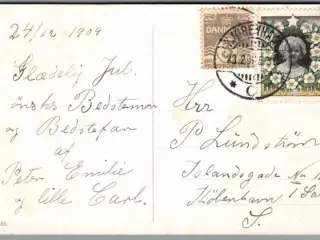 24/12 1909
Glædelig Jul.
ønskes Bedstemor
og Bedstefar
af
Peter Emilie
og lille Carl.
DANMARK
KJØBENHAVN
C
Herr
P Lundstrøm
Islandsgade No
København
S.